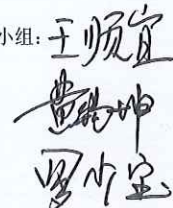 小组：王顺宜
黄 坤
罗小宝